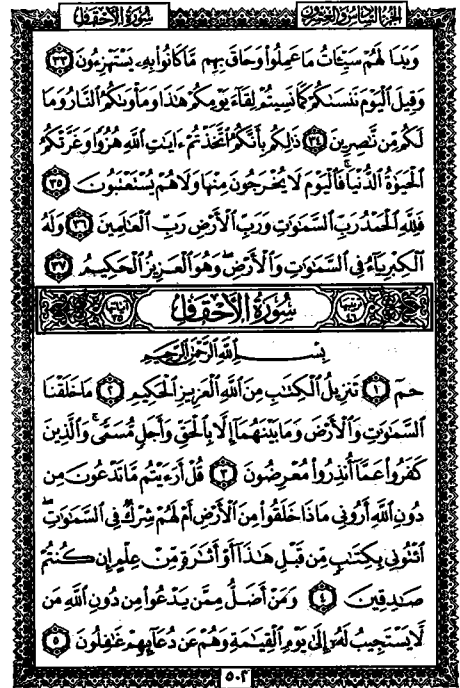 الجزء السادس والعشرون سورة الأحقاف
وَبَدَا لَهُمْ سَيِّـَٔاتُ مَا عَمِلُوا۟ وَحَاقَ بِهِم مَّا كَانُوا۟ بِهِۦ يَسْتَهْزِءُونَ ٣٣
وَقِيلَ ٱلْيَوْمَ نَنسَىٰكُمْ كَمَا نَسِيتُمْ لِقَآءَ يَوْمِكُمْ هَٰذَا وَمَأْوَىٰكُمُ ٱلنَّارُ وَمَا
لَكُم مِّن نَّٰصِرِينَ ٣٤ ذَٰلِكُم بِأَنَّكُمُ ٱتَّخَذْتُمْ ءَايَٰتِ ٱللَّهِ هُزُوًا وَغَرَّتْكُمُ
ٱلْحَيَوٰةُ ٱلدُّنْيَا ۚ فَٱلْيَوْمَ لَا يُخْرَجُونَ مِنْهَا وَلَا هُمْ يُسْتَعْتَبُونَ ٣٥
فَلِلَّهِ ٱلْحَمْدُ رَبِّ ٱلسَّمَٰوَٰتِ وَرَبِّ ٱلْأَرْضِ رَبِّ ٱلْعَٰلَمِينَ ٣٦ وَلَهُ
ٱلْكِبْرِيَآءُ فِى ٱلسَّمَٰوَٰتِ وَٱلْأَرْضِ ۖ وَهُوَ ٱلْعَزِيزُ ٱلْحَكِيمُ ٣٧
سُورَةُ الأَحْقَافِ
بِسْمِ ٱللَّهِ ٱلرَّحْمَٰنِ ٱلرَّحِيمِ
حمٓ ١ تَنزِيلُ ٱلْكِتَٰبِ مِنَ ٱللَّهِ ٱلْعَزِيزِ ٱلْحَكِيمِ ٢ مَا خَلَقْنَا
ٱلسَّمَٰوَٰتِ وَٱلْأَرْضَ وَمَا بَيْنَهُمَآ إِلَّا بِٱلْحَقِّ وَأَجَلٍ مُّسَمًّى ۚ وَٱلَّذِينَ
كَفَرُوا۟ عَمَّآ أُنذِرُوا۟ مُعْرِضُونَ ٣ قُلْ أَرَءَيْتُم مَّا تَدْعُونَ مِن
دُونِ ٱللَّهِ أَرُونِى مَاذَا خَلَقُوا۟ مِنَ ٱلْأَرْضِ أَمْ لَهُمْ شِرْكٌ فِى ٱلسَّمَٰوَٰتِ ۖ
ٱئْتُونِى بِكِتَٰبٍ مِّن قَبْلِ هَٰذَآ أَوْ أَثَٰرَةٍ مِّنْ عِلْمٍ إِن كُنتُمْ
صَٰدِقِينَ ٤ وَمَنْ أَضَلُّ مِمَّن يَدْعُوا۟ مِن دُونِ ٱللَّهِ مَن
لَّا يَسْتَجِيبُ لَهُۥٓ إِلَىٰ يَوْمِ ٱلْقِيَٰمَةِ وَهُمْ عَن دُعَآئِهِمْ غَٰفِلُونَ ٥
٥٠٢